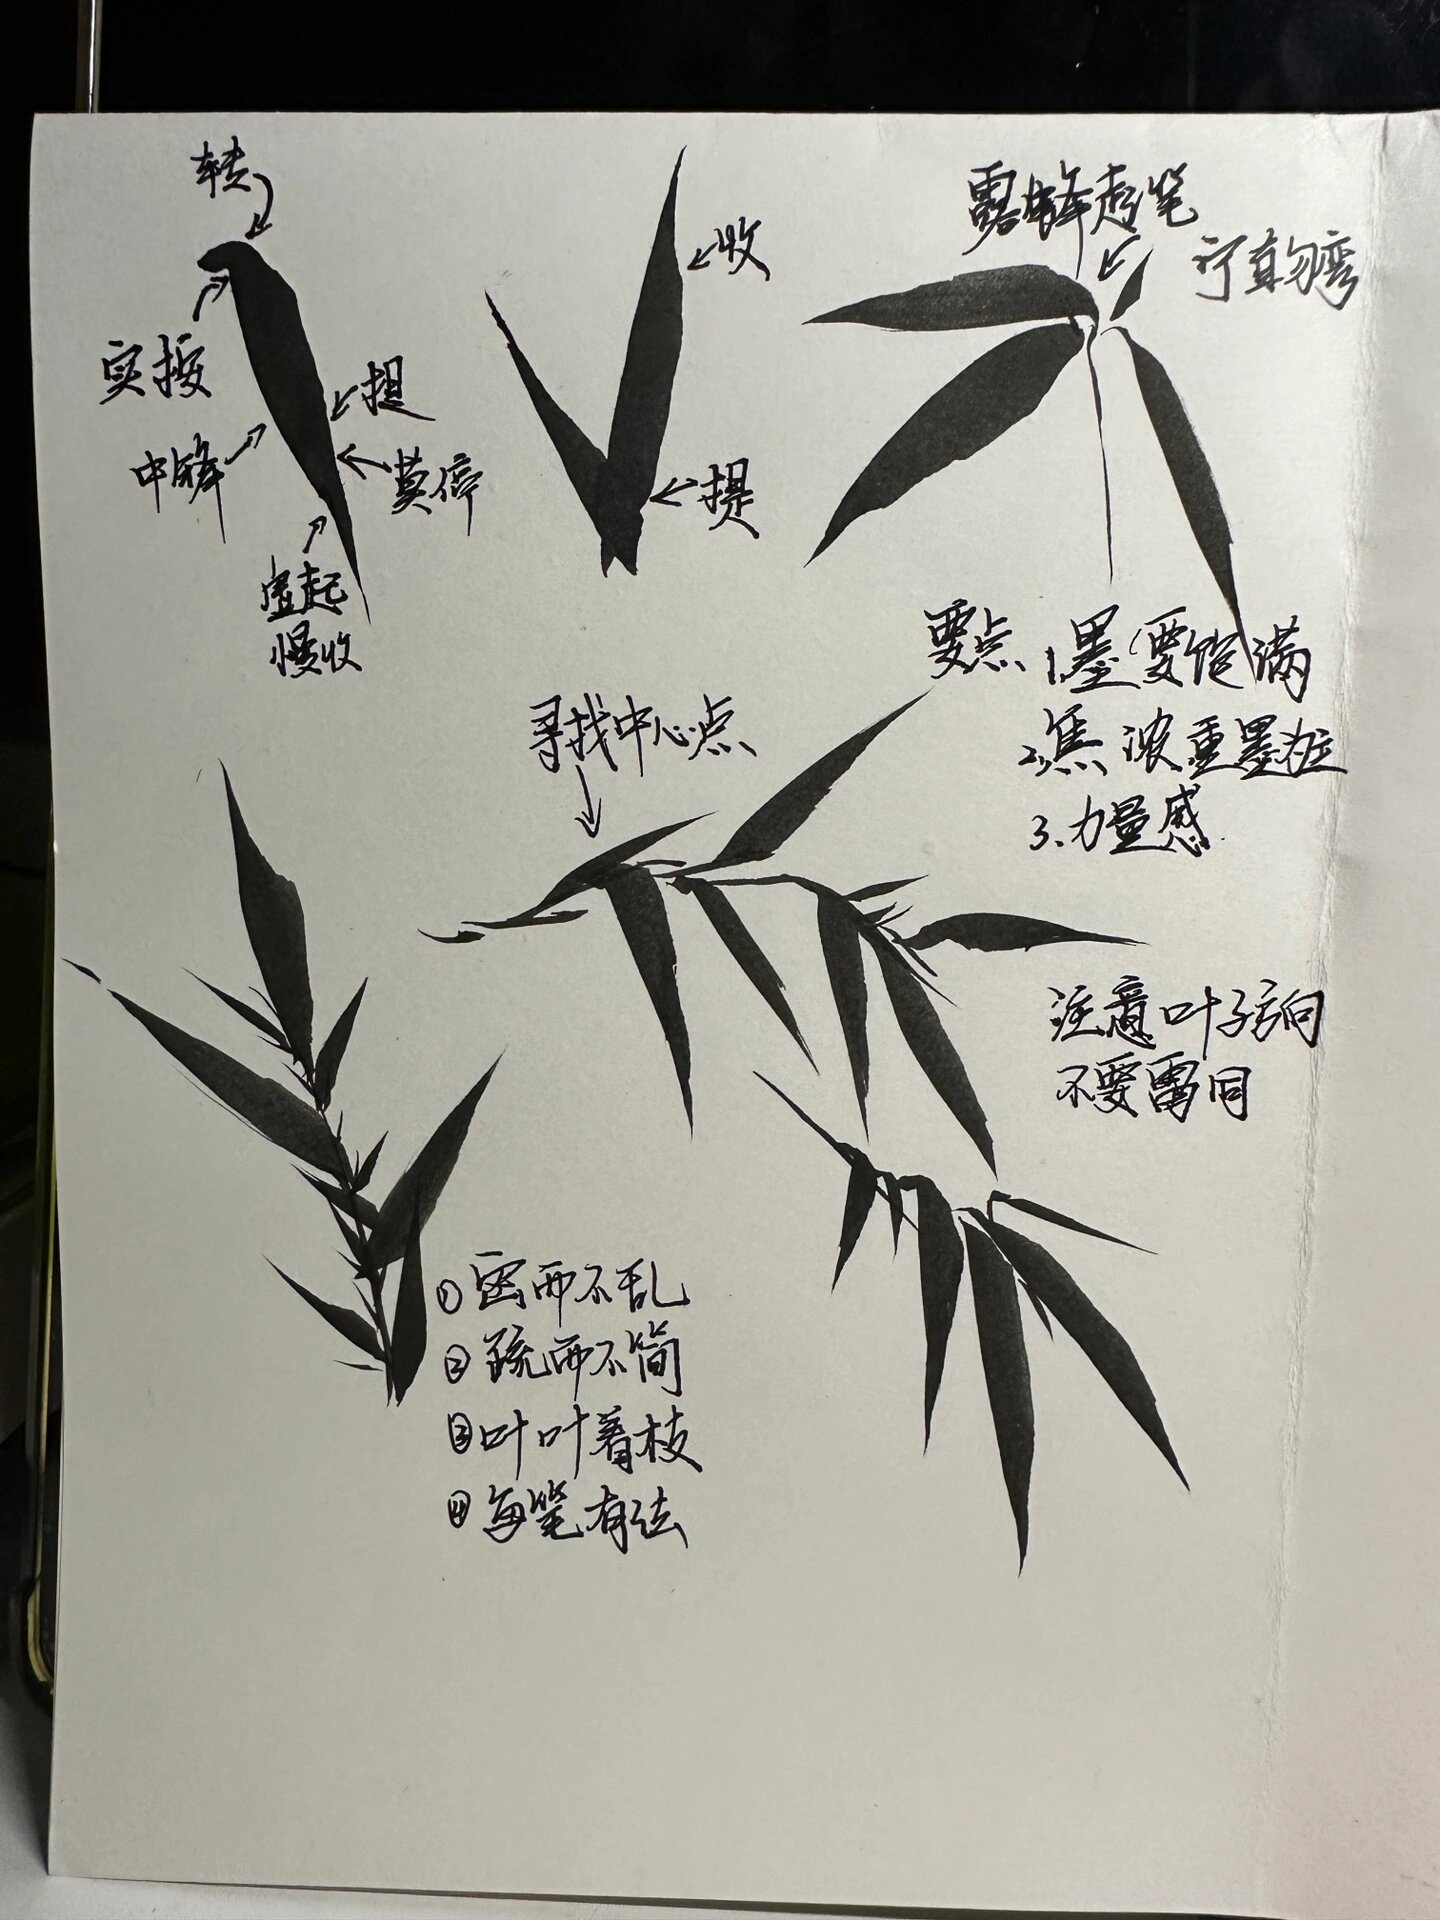 转
实按
中锋
提
莫停
虚起
慢收
收
提
露锋起笔
宁直勿弯
要点 1.墨要饱满
2.焦浓重墨为主
3.力量感
寻找中心点
注意叶子方向
不要雷同
①密而不乱
②疏而不简
③叶叶着枝
④每笔有法